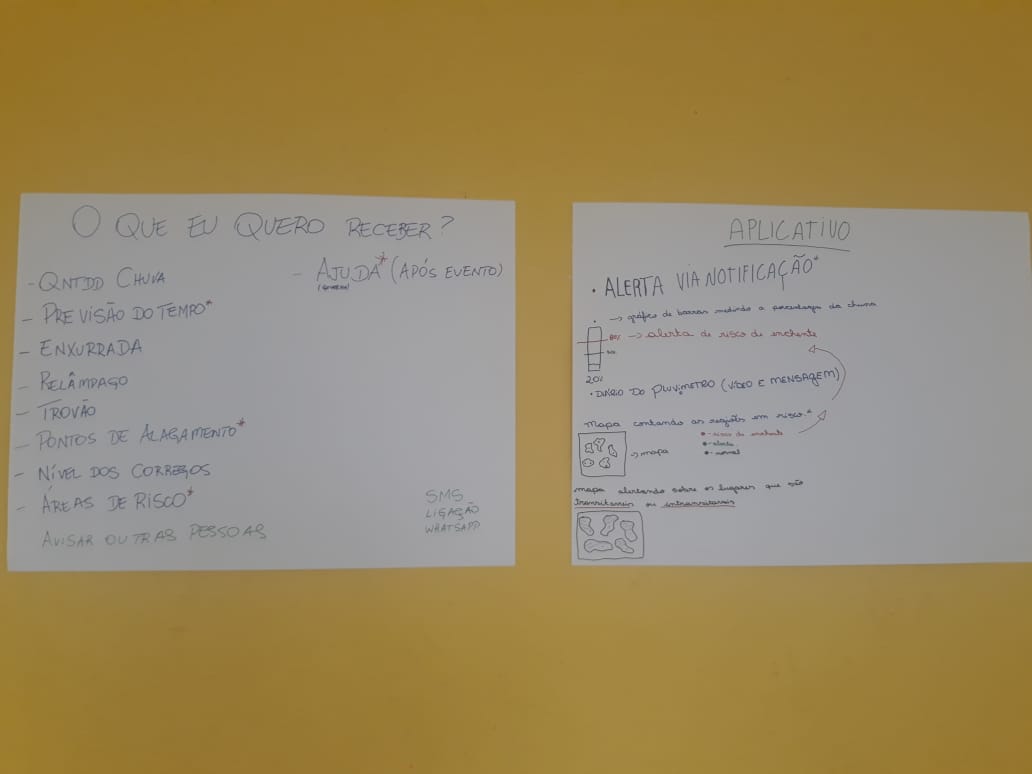 O QUE EU QUERO RECEBER?
- QNTDD CHUVA
- PREVISÃO DO TEMPO*
- ENXURRADA
- RELÂMPAGO
- TROVÃO
- PONTOS DE ALAGAMENTO*
- NÍVEL DOS CORREGOS
- ÁREAS DE RISCO*
AVISAR OUTRAS PESSOAS
- AJUDA* (APÓS EVENTO)
SMS
LIGAÇÃO
WHATSAPP
APLICATIVO
• ALERTA VIA NOTIFICAÇÃO*
→ gráfico de barras medindo a porcentagem da chuva
80% → alerta de risco de enchente
20%
• DIÁRIO DO PLUVIMETRO (VÍDEO E MENSAGEM)
Mapa contando as regiões em risco.*
• - risco de enchente
• - alerta
• - normal
→ mapa
mapa alertando sobre os lugares que são
transitaveis ou intransitaveis